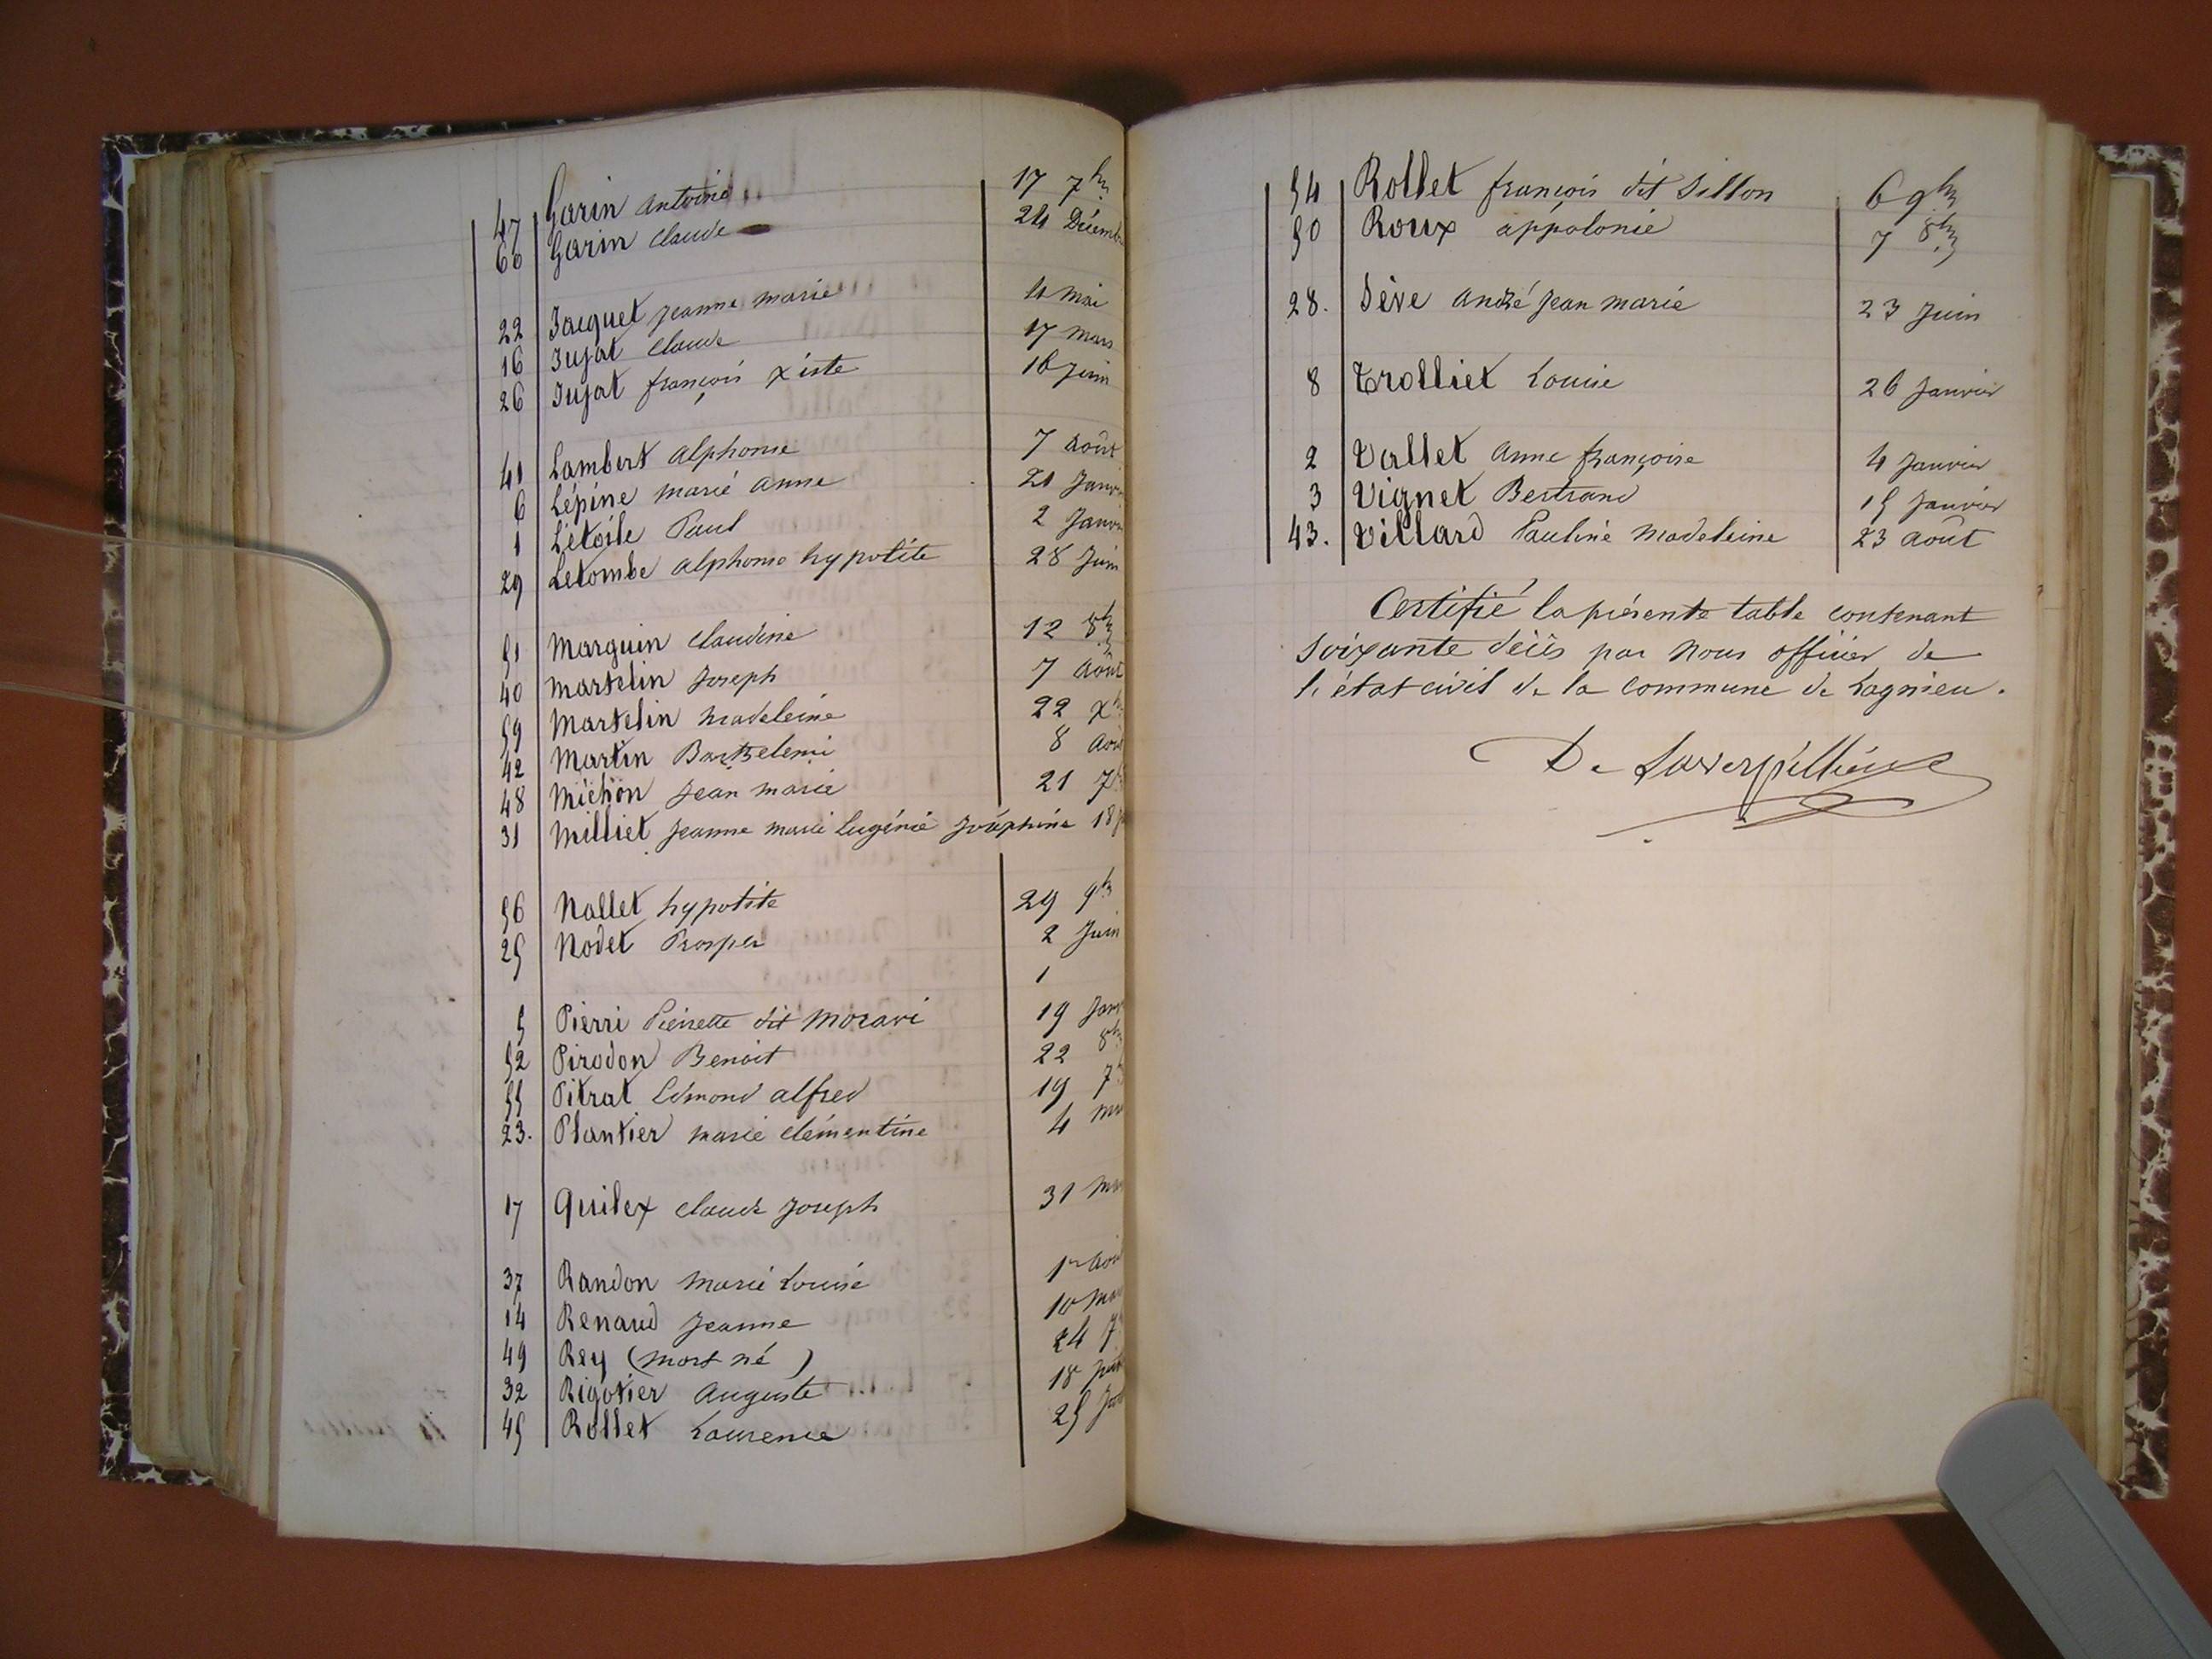 47 Garin antoine 17 7bre
60 Garin claude 24 Décemb
22 Jacquet jeanne marie 4 mai
16 Jujat claude 17 mars
26 Jujat françois xiste 16 juin
41 Lambert alphonse 7 août
6 Lépine marie anne 21 Janvi
1 Létoile Paul 2 Janvi
29 Letombe alphonse hypolite 28 Juin
51 Marguin claudine 12 8bre
40 Martelin Joseph 7 août
59 Martelin madeleine 22 Xbre
42 Martin Barthelemi 8 août
48 Michon jean marie 21 7b
31 Milliet jeanne marie Eugénie Joséphine 18 j
56 Nallet hypolite 29 9bre
25 Nodet Prosper 2 Juin
1
5 Pierri Pierrette dit Moravi 19 Janv
52 Pirodon Benoit 22 8bre
55 Pitrat Edmond alfred 19 7b
23. Plantier marie clémentine 4 ma
17 Quilex claude joseph 31 mar
37 Randon marie Louise 1er aoû
14 Renaud jeanne 10 mar
49 Rey (mort né) 24 7b
32 Rigotier auguste 18 juil
45 Rollet Laurence 25
54 Rollet françois dit Sillon 6 9bre
50 Roux appolonie 7 8bre
28. Sève andré jean marie 23 Juin
8 Trolliet Louise 26 Janvier
2 Vallet anne françoise 4 Janvier
3 Vignet Bertrand 15 Janvier
43. Villard Pauline madeleine 23 août
Certifié la présente table contenant
soixante décès par nous officier de
l'état civil de la commune de Lagnieu.
De Laverpillière